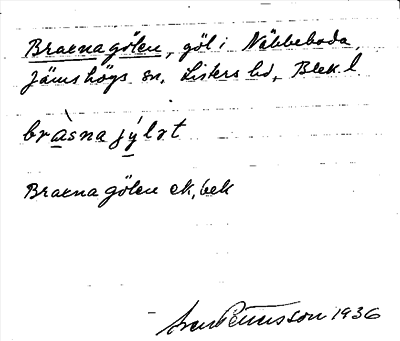 Braxnagölen, göl i Näbbeboda,
Jämshögs sn, Listers hd, Blek. l
bràsnajýlxt
Braxnagölen ek, bek
Sven Petersson 1936